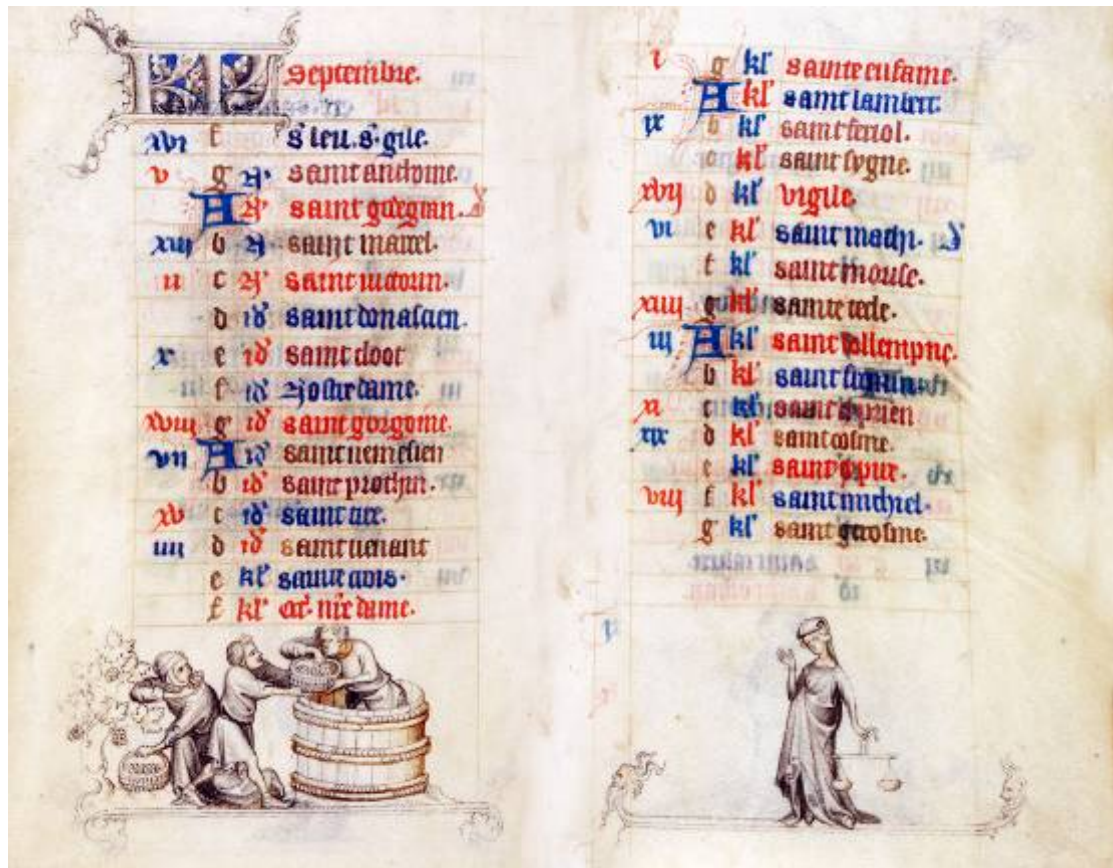 KL Septembre.
xvi f s' leu. s. gile.
v g N' saint anthoine.
A N' saint
xiij b N saint marcel.
ii c N' saint victorin.
d id' saint donascien.
x e id' saint cloot
f id' Nostre dame.
xviii g id' saint gorgoine.
vii A id' saint nemesien
b id' saint prothin.
xv c id' saint
iiii d id' saint venant
e kl' sainte crois.
f kl' oct. nre dame.
i g kl' sainte eufame.
A kl' saint lambert.
ix b kl' saint feriol.
c kl' saint sygne.
xvij d kl' vigile.
vi e kl' saint mach'. d
f kl' saint mouise.
xiiij g kl' sainte tecle.
iij A kl' saint sollempne.
b kl' saint firmin.
xi c kl' saint cyprien
xix d kl' saint cosme.
e kl' saint
viij f kl' saint michiel.
g kl' saint gerosme.